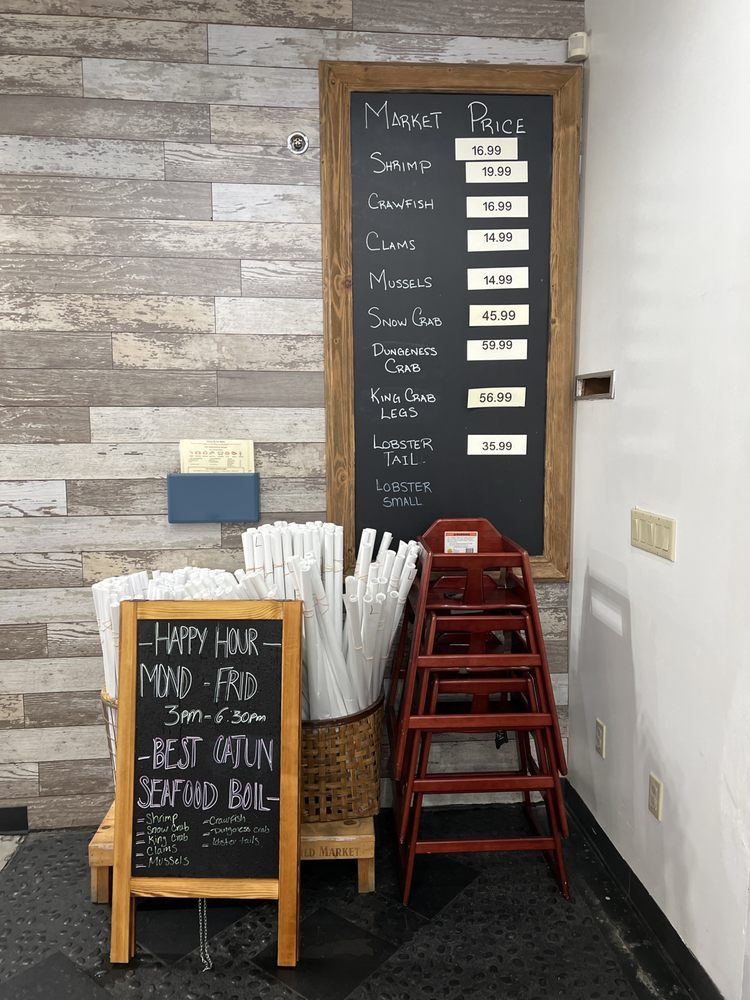 MARKET PRICE
16.99
SHRIMP 19.99
CRAWFISH 16.99
CLAMS 14.99
MUSSELS 14.99
SNOW CRAB 45.99
DUNGENESS 59.99
CRAB
KING CRAB 56.99
LEGS
LOBSTER 35.99
TAIL
LOBSTER
SMALL
-HAPPY HOUR-
MOND - FRID
3PM - 6:30PM
-BEST CAJUN
SEAFOOD BOIL-
- Shrimp
- Snow Crab
- King Crab
- Clams
- Mussels
- Crawfish
- Dungeness Crab
- Lobster tails
LD MARKET